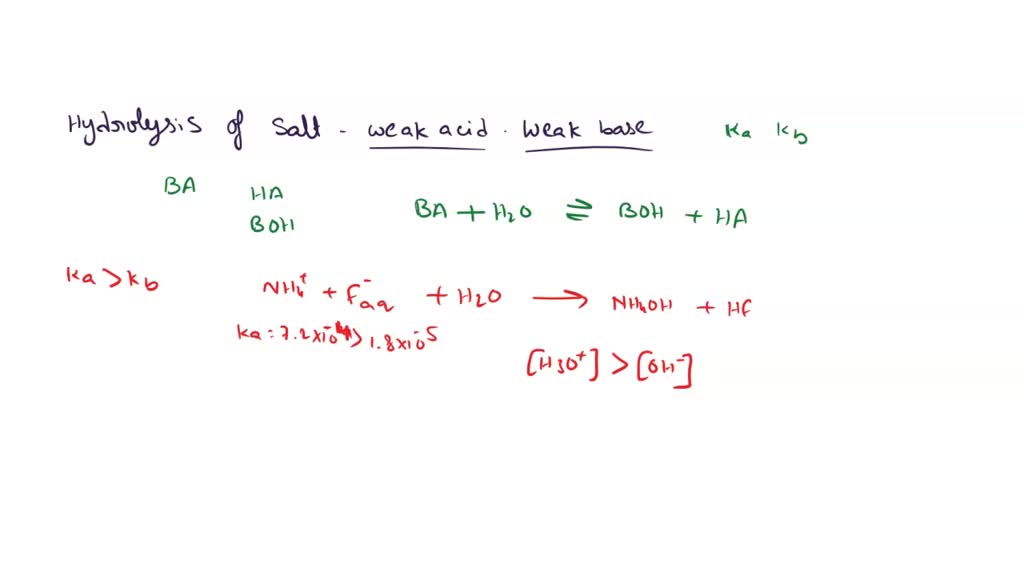 Hydrolysis of Salt - weak acid . weak base Ka Kb
BA HA
BOH
BA + H2O ⇌ BOH + HA
Ka > Kb
NH4+ + F-aq + H2O → NH4OH + HF
Ka = 7.2×10-4 > 1.8×10-5
[H3O+] > [OH-]